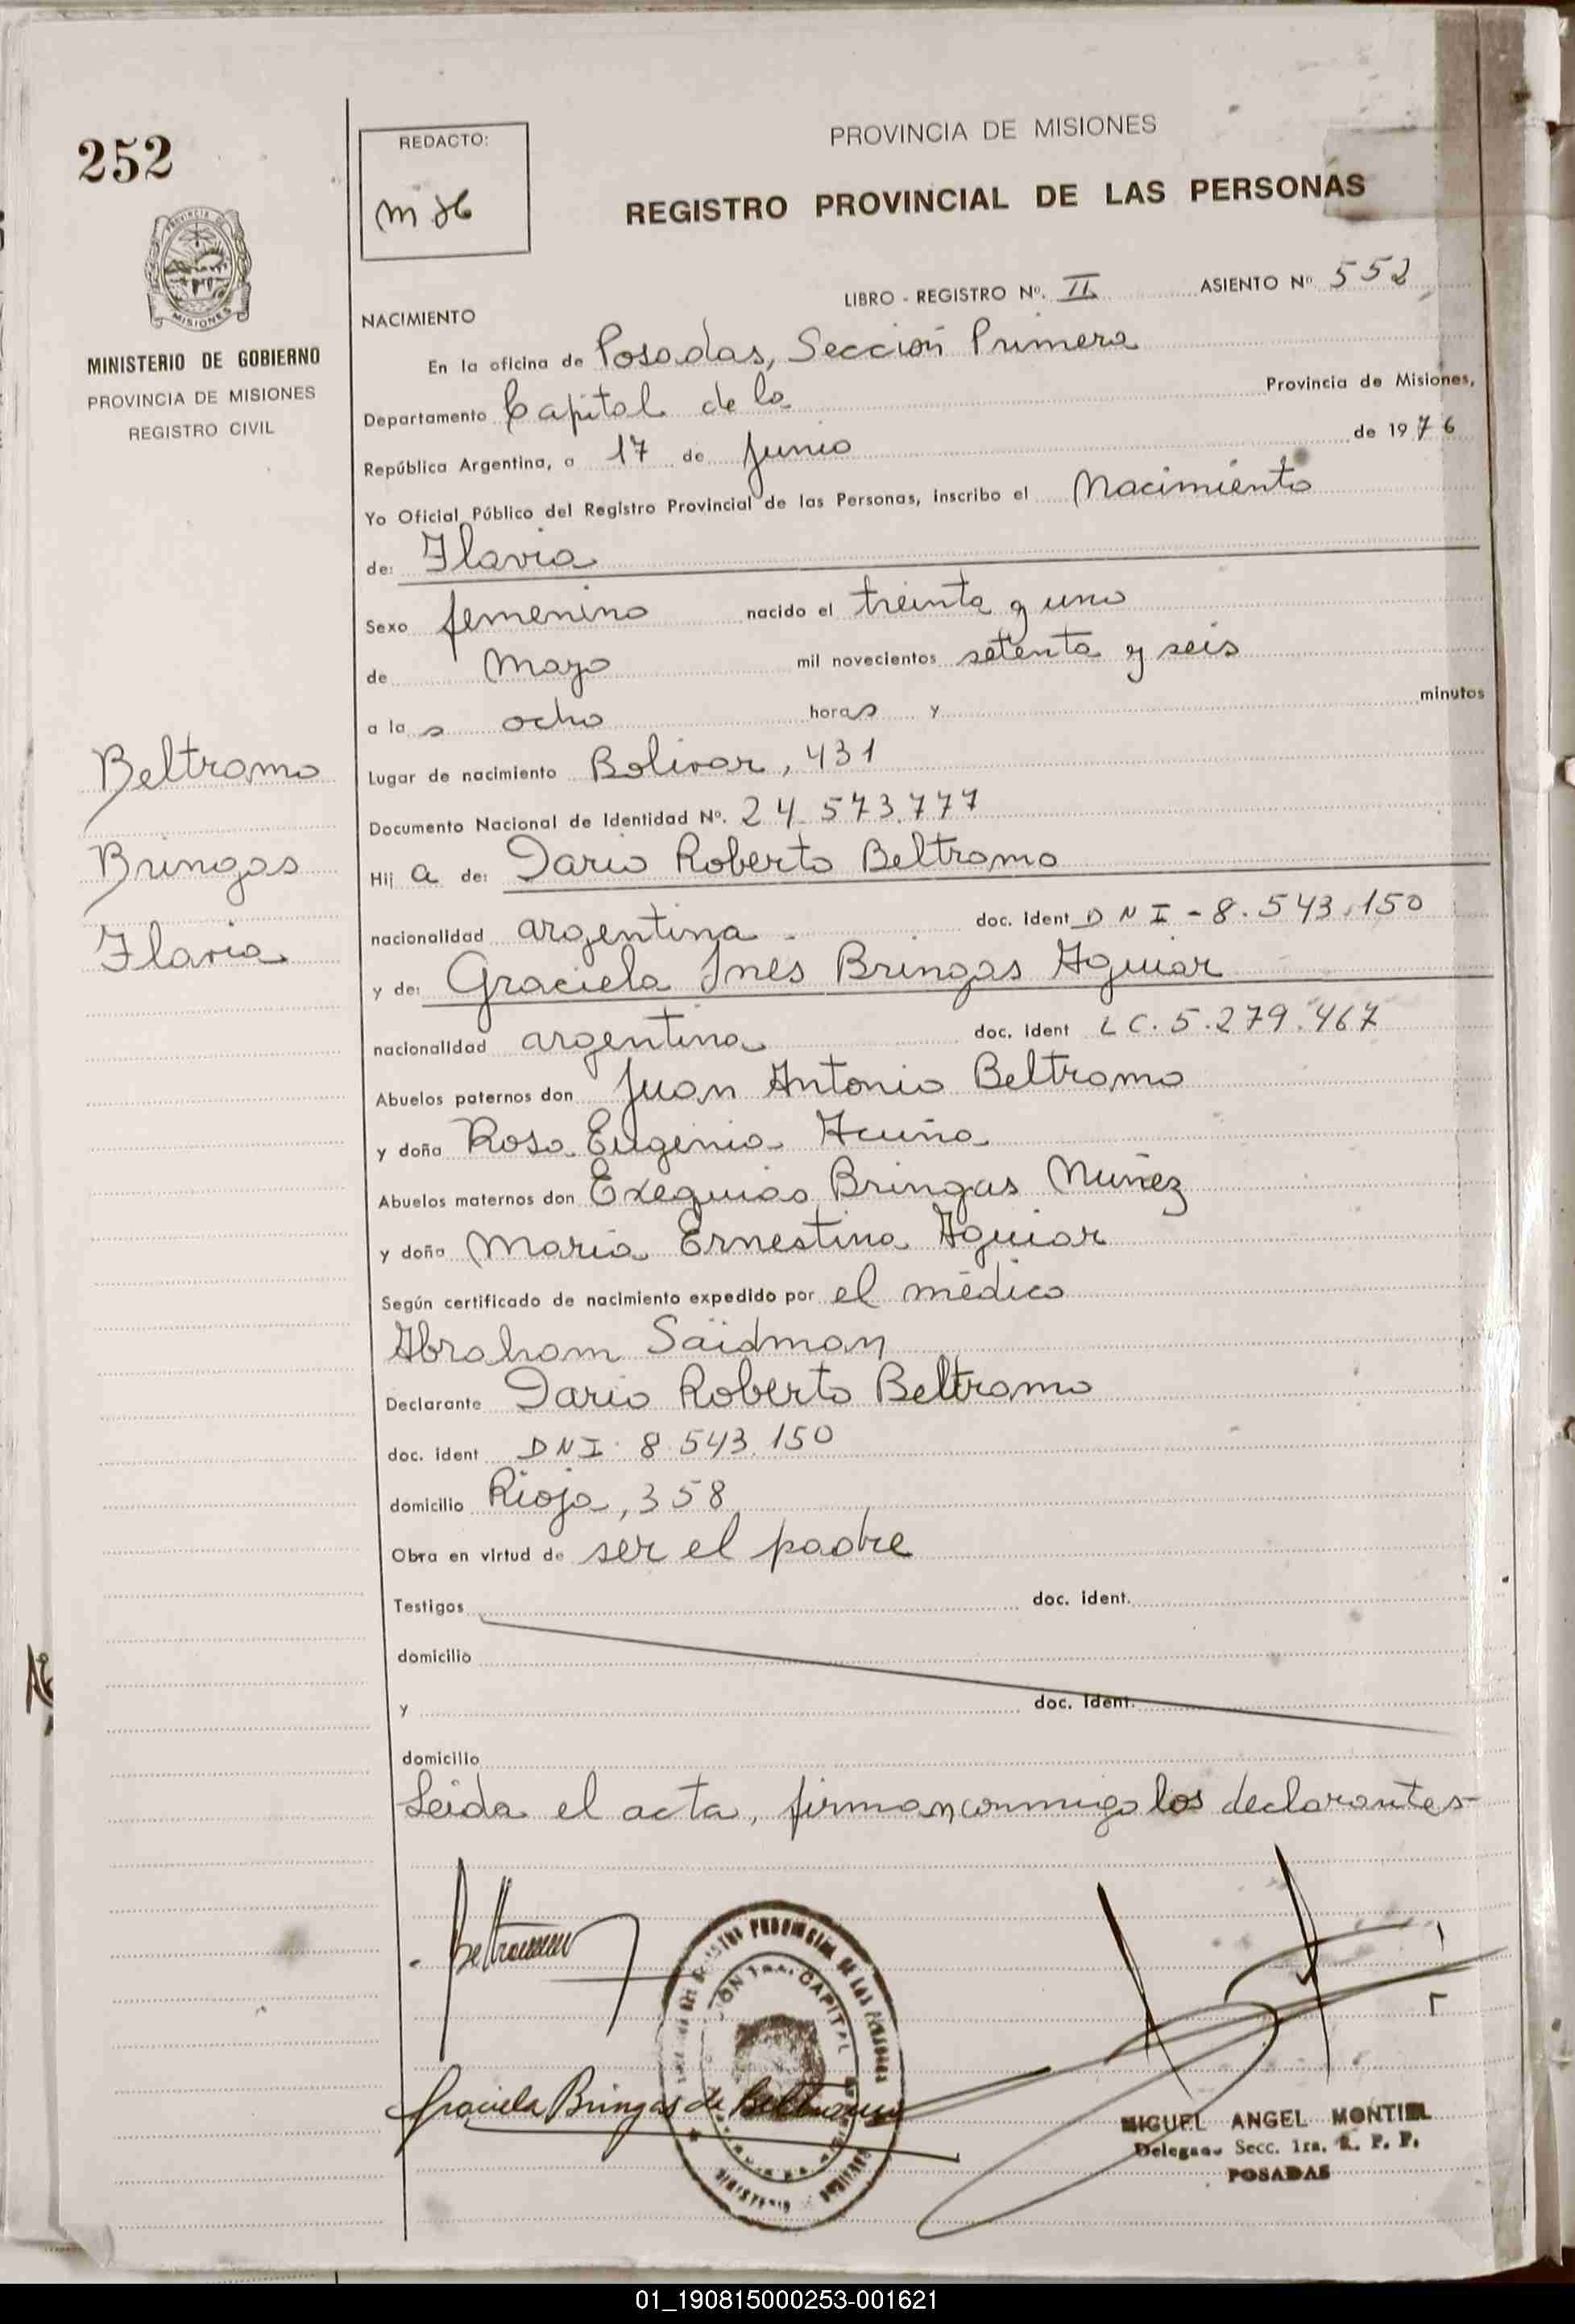 252
REDACTO:
PROVINCIA DE MISIONES
REGISTRO PROVINCIAL DE LAS PERSONAS
PROVINCIA DE
MISIONES
MINISTERIO DE GOBIERNO
PROVINCIA DE MISIONES
REGISTRO CIVIL
LIBRO - REGISTRO Nº. II ASIENTO Nº 552
NACIMIENTO
En la oficina de Posadas, Sección Primera
Departamento Capital de la Provincia de Misiones,
República Argentina, a 17 de Junio de 1976
Yo Oficial Público del Registro Provincial de las Personas, inscribo el Nacimiento
de: Flavia
Sexo femenino nacido el treinta y uno
de Mayo mil novecientos setenta y seis
a la s ocho horas y minutos
Beltramo
Lugar de nacimiento Bolivar, 431
Documento Nacional de Identidad Nº. 24.573.777
Bringas
Hij a de: Dario Roberto Beltramo
Flavia
nacionalidad argentina doc. ident DNI - 8.543.150
y de: Graciela Ines Bringas Aguiar
nacionalidad argentina doc. ident LC. 5.279.467
Abuelos paternos don Juan Antonio Beltramo
y doña Rosa Eugenia Acuña
Abuelos maternos don Exequias Bringas Nuñez
y doña Maria Ernestina Aguiar
Según certificado de nacimiento expedido por el médico
Abraham Saidman
Declarante Dario Roberto Beltramo
doc. ident DNI 8.543.150
domicilio Rioja, 358
Obra en virtud de ser el padre
Testigos doc. ident.
domicilio
y doc. ident.
domicilio
Leida el acta, firman conmigo los declarantes
Beltramo
Graciela Bringas de Beltramo
MIGUEL ANGEL MONTIEL
Delegado Secc. 1ra. R. P. P.
POSADAS
01_190815000253-001621